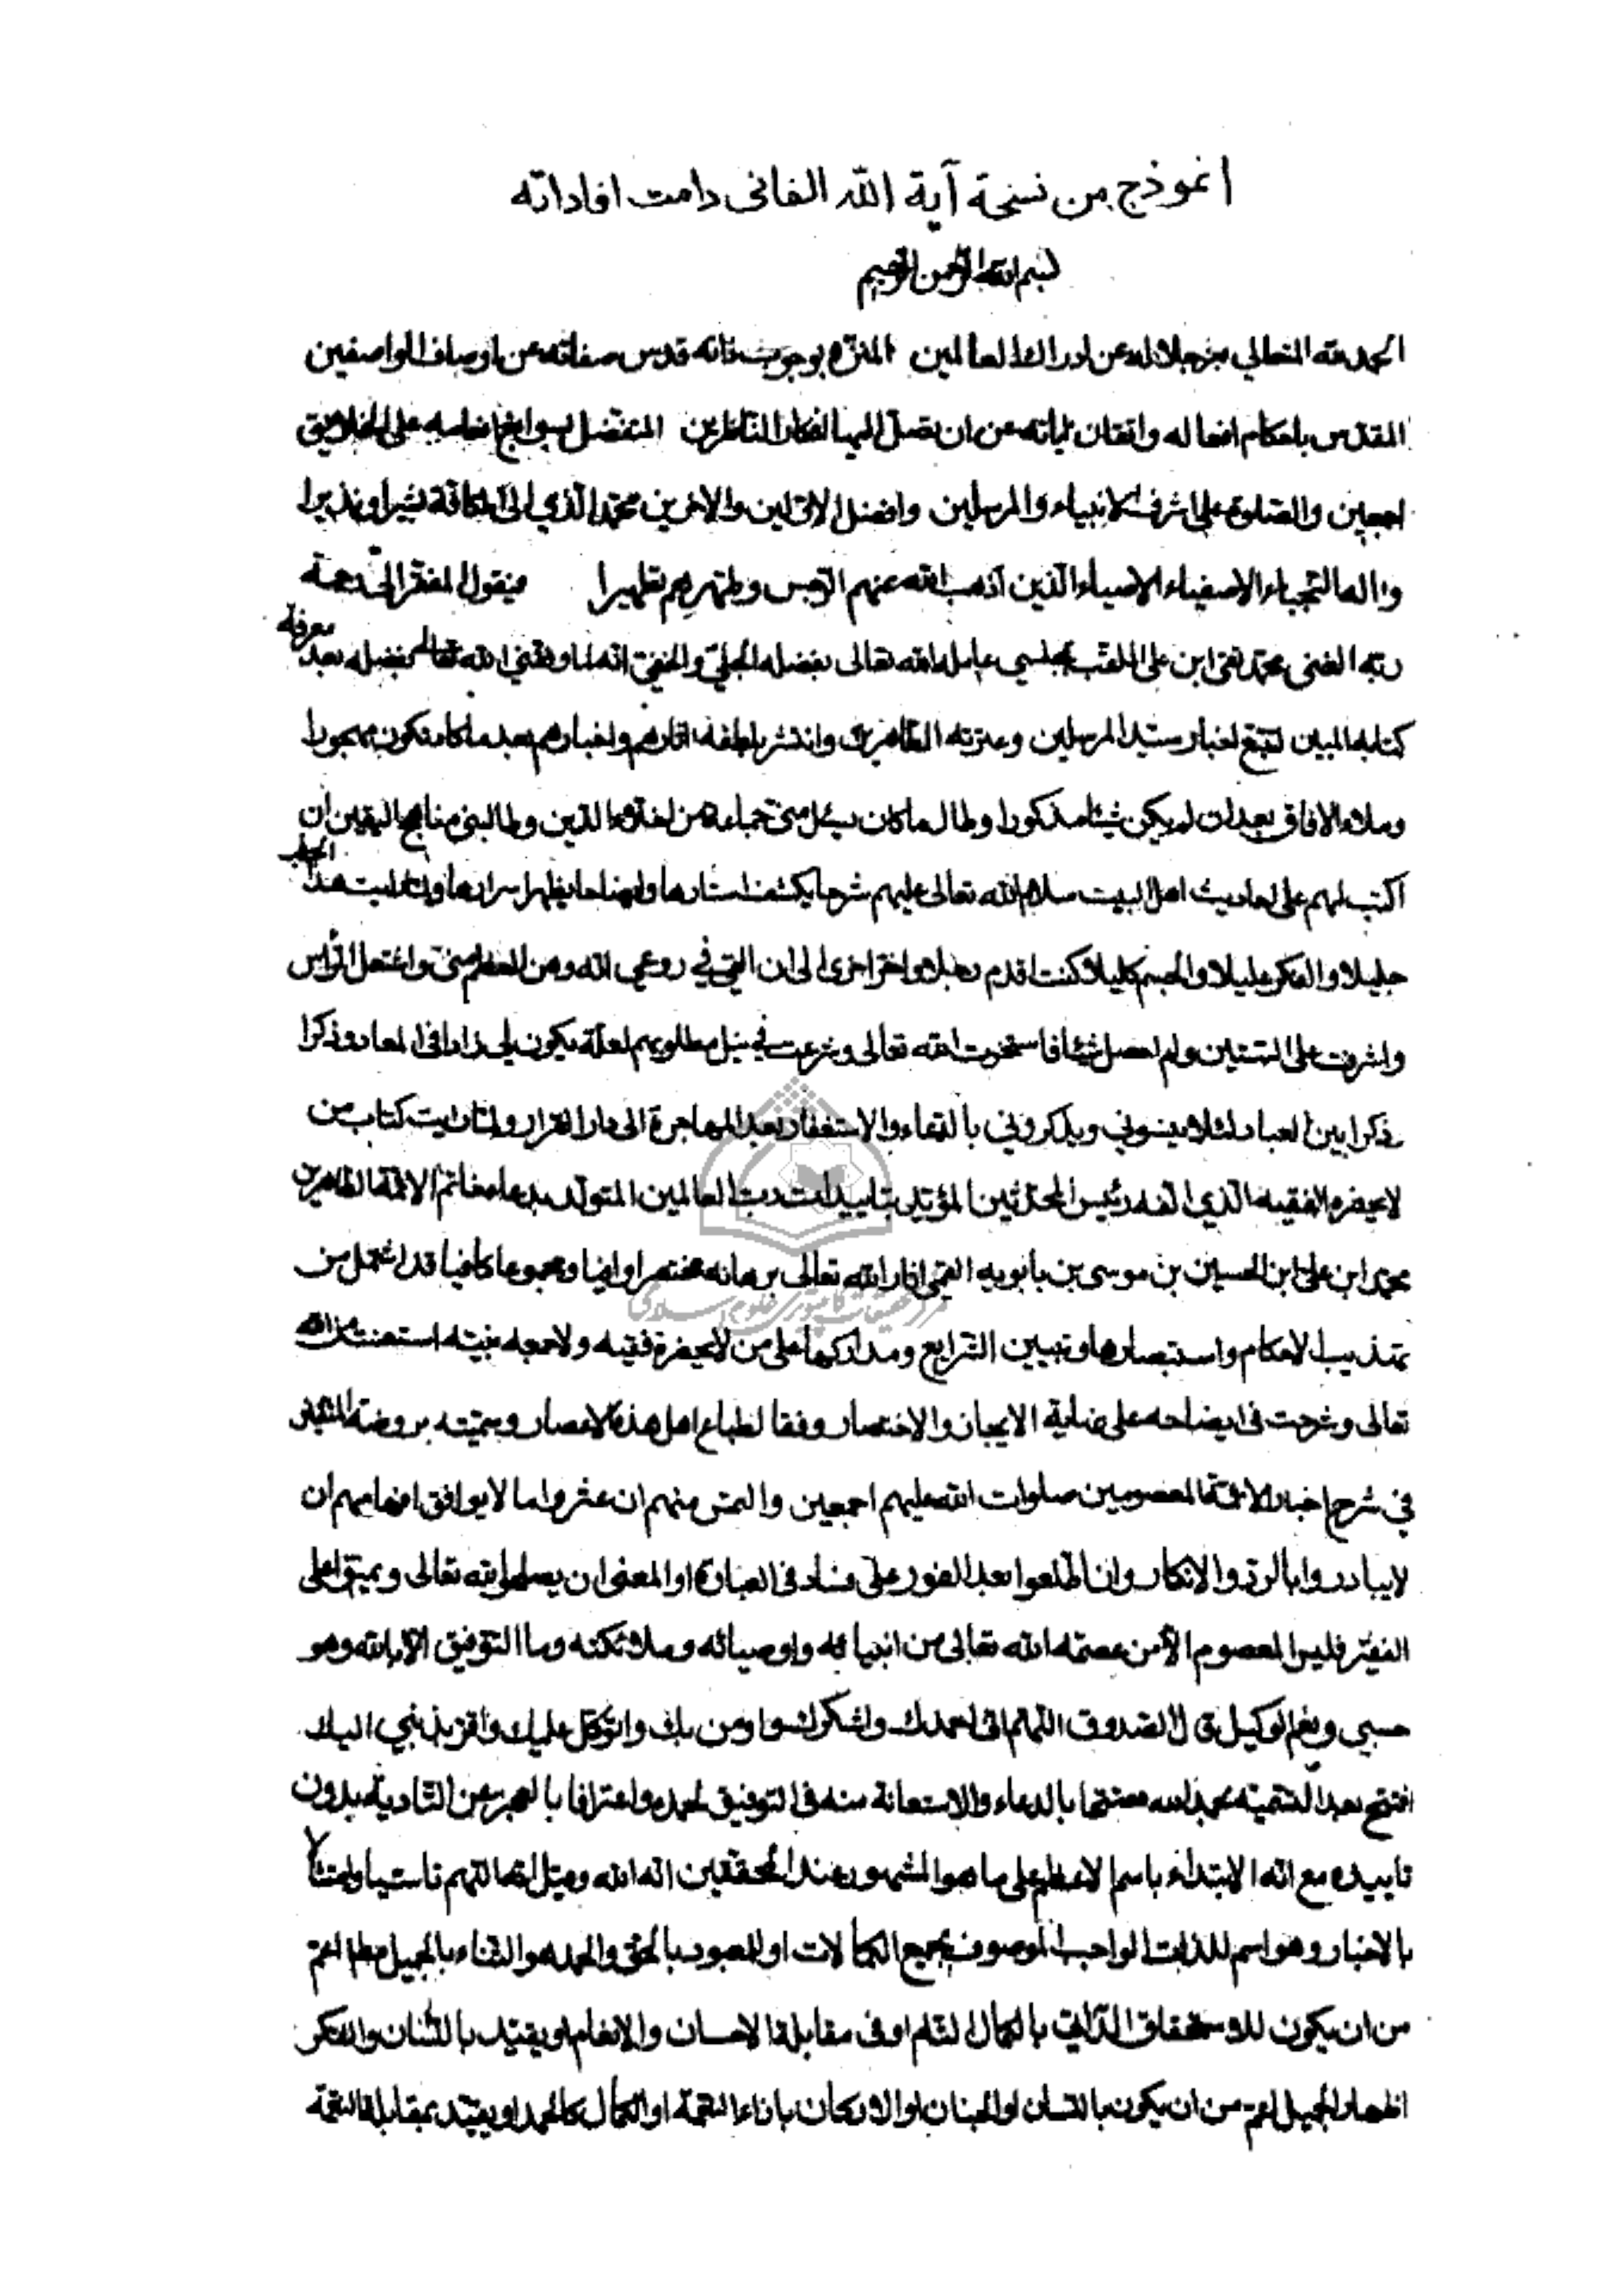 انموذج من نسخة آية الله الفانى دامت افاداته
بسم الله الرحمن الرحيم
الحمد لله المتعالي بعز جلاله عن ادراك العالمين المنزه بوجوب ذاته قدس صفاته عن اوصاف الواصفين
المقدس باحكام افعاله واتقان اياته عن ان تصل اليها افكار الناظرين المتفضل بسوابغ انعامه على الخلايق
اجمعين والصلوة على اشرف الانبياء والمرسلين وافضل الاولين والاخرين محمد الذي الى كافة بشيرا ونذيرا
واله النجباء الاصفياء الاوصياء الذين اذهب الله عنهم الرجس وطهرهم تطهيرا فيقول المفتقر الى رحمة
ربه الغنى محمد تقى ابن على الملقب بمجلسي عامله الله تعالى بفضله الجلي والخفي انه لما وفقني الله تعالى بفضله بعد معرفة
كتابه المبين لتتبع اخبار سيد المرسلين وعترته الطاهرين وانتشر بلطفه اثارهم واخبارهم بعد ما كان تكون مهجورا
وملاء الافاق بعد ان لم يكن شيئا مذكورا وطال ما كان يسئل منى جماعة من اخلاء الدين وطالبي مناهج اليقين ان
اكتب لهم على احاديث اهل البيت سلام الله تعالى عليهم شرحا يكشف استارها وايضاحا يظهر اسرارها ولما رايت هذا الخطب
جليلا والفكر عليلا والجسم كليلا كنت اقدم رجلا واخر اخرى الى ان القي في روعي انه وهن العظم مني واشتعل الراس
واشرفت على الستين ولم احصل شيئا فاستخرت الله تعالى وشرعت في نيل مطلوبهم لعله يكون لي زادا فى المعاد وذكرا
ذكرا بين العباد لئلا ينسوني ويذكروني بالدعاء والاستغفار بعد المهاجرة الى دار القرار ولما رايت كتاب من
لا يحضره الفقيه الذي الفه رئيس المحدثين المؤيد بتاييدات رب العالمين المتولد بدعاء خاتم الائمة الطاهرين
محمد ابن على ابن الحسين بن موسى بن بابويه القمي انار الله تعالى برهانه مختصرا وافيا ومجموعا كافيا قد اشتمل من
تهذيب الاحكام واستبصارها وتبيين الشرايع ومداركها على من لا يحضره فقيه ولا حجه نبيه استعنت من الله
تعالى وشرعت فى ايضاحه على غاية الايجاز والاختصار وفقا لطباع اهل هذه الاعصار وسميته بروضة المتقين
في شرح اخبار الائمة المعصومين صلوات الله عليهم اجمعين والتمس منهم ان عثروا ما لا يوافق افهامهم ان
لا يبادروا بالرد والانكار وان اطلعوا بعد الغور على فساد فى العبارة او المعنى ان يصلحوا لله تعالى ويمنوا على
الفقير فليس المعصوم الا من عصمه الله تعالى من انبيائه واوصيائه وملائكته وما التوفيق الا بالله وهو
حسبي ونعم الوكيل قال الصدوق اللهم انى احمدك واشكرك واومن بك واتوكل عليك واقر بذنبي اليك
افتتح بعد التسمية بحمد الله معتتحا بالدعاء والاستعانة منه فى التوفيق لحمده واعترافا بالعجز عن التادية بدون
تاييده مع انه الابتداء باسم الاعظم على ما هو المشهور عند المحققين انه الله وميل اللهم تاسيا وامتثالا
بالاخبار وهو اسم للذات الواجب الموصوف بجميع الكمالات او المعبود بالحق والحمد هو الثناء بالجميل مطلقا اعم
من ان يكون للاستحقاق الذاتي بالكمال التام او فى مقابلة الاحسان والانعام او يقيد باللسان والشكر
اظهار الجميل اعم من ان يكون باللسان او الجنان او الاركان بازاء النعمة او الكمال كالحمد او يقيد بمقابلة النعمة